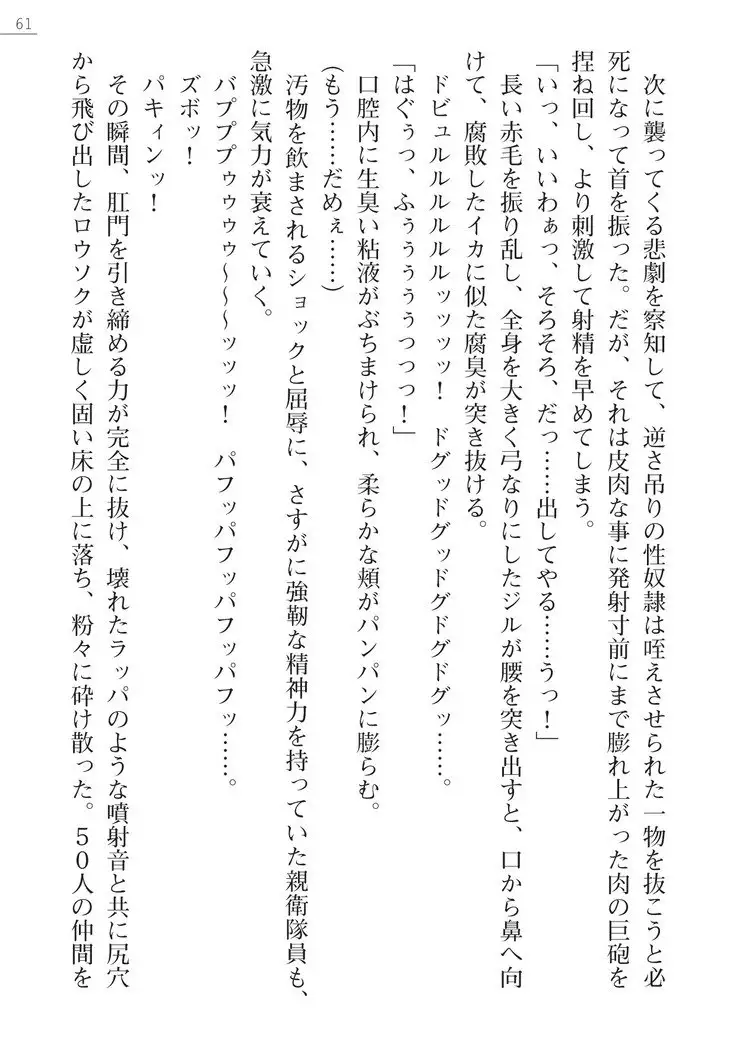 61
次に襲ってくる悲劇を察知して、逆さ吊りの性奴隷は咥えさせられた一物を抜こうと必
死になって首を振った。だが、それは皮肉な事に発射寸前にまで膨れ上がった肉の巨砲を
捏ね回し、より刺激して射精を早めてしまう。
「いっ、いいわぁっ、そろそろ、だっ……出してやる……うっ！」
長い赤毛を振り乱し、全身を大きく弓なりにしたジルが腰を突き出すと、口から鼻へ向
けて、腐敗したイカに似た腐臭が突き抜ける。
ドビュルルルルルルッッッッ！　ドグッドグッドグドグドグッ……。
「はぐぅっ、ふぅぅぅぅぅっっっ！」
口腔内に生臭い粘液がぶちまけられ、柔らかな頬がパンパンに膨らむ。
（もう……だめぇ……）
汚物を飲まされるショックと屈辱に、さすがに強靭な精神力を持っていた親衛隊員も、
急激に気力が衰えていく。
バプププゥゥゥゥ～～～ッッッ！　パフッパフッパフッパフッ……。
ズボッ！
パキィンッ！
その瞬間、肛門を引き締める力が完全に抜け、壊れたラッパのような噴射音と共に尻穴
から飛び出したロウソクが虚しく固い床の上に落ち、粉々に砕け散った。５０人の仲間を